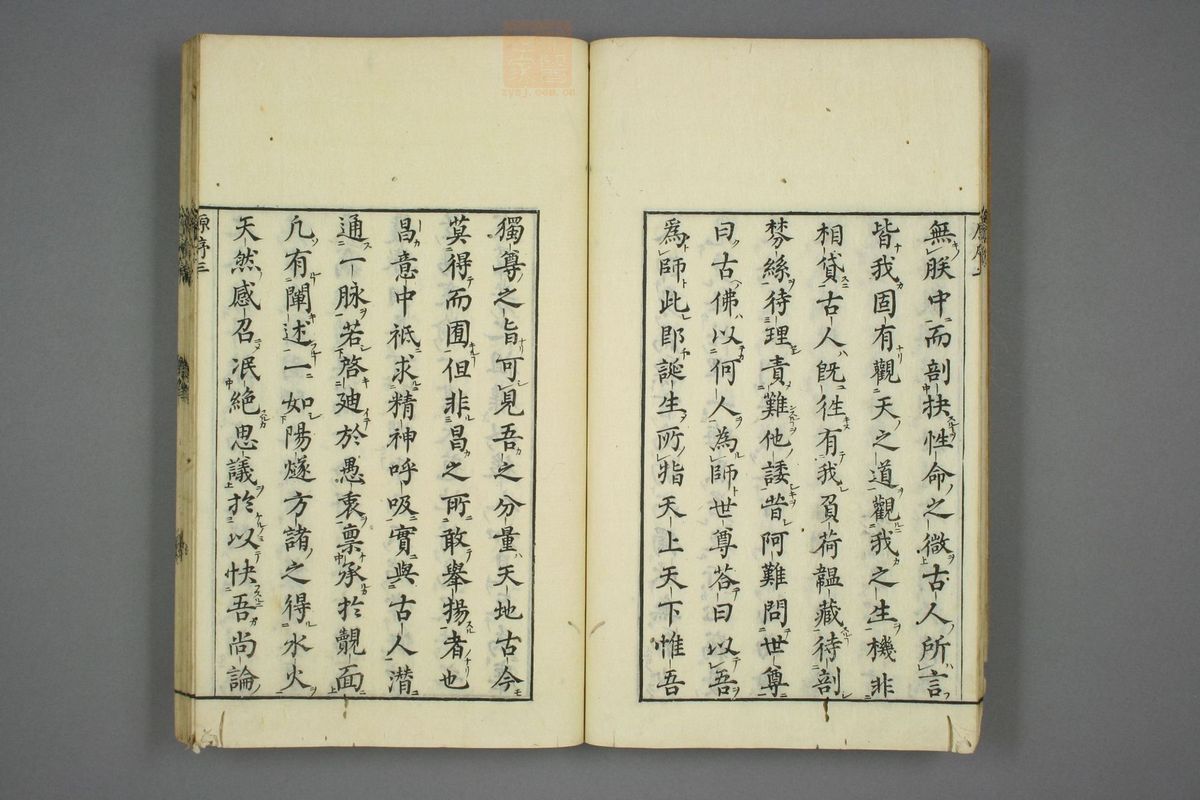 無朕中而剖抉性命之微古人所言
皆我固有觀天之道觀我之生機非
相貸古人既徃有我負荷韞藏待剖
棼絲待理責難他諉昔阿難問世尊
曰古佛以何人為師世尊荅曰以吾
爲師此卽誕生所指天上天下惟吾
獨尊之旨可見吾之分量天地古今
莫得而囿但非昌之所敢舉揚者也
昌意中祇求精神呼吸實與古人潜
通一脉若啓廸於愚衷稟承於覿面
凢有闡述一如陽燧方諸之得水火
天然感召泯絶思議於以快吾尚論
原序三
zysj.com.cn